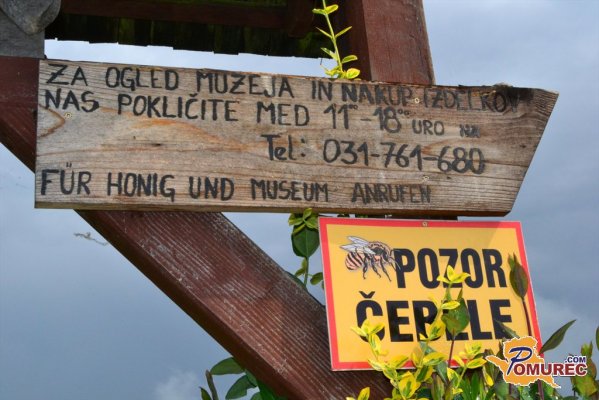 ZA OGLED MUZEJA IN NAKUP IZDELKOV
NAS POKLIČITE MED 11⁰⁰-18⁰⁰ URO NA
Tel: 031-761-680
FÜR HONIG UND MUSEUM ANRUFEN
POZOR
ČEBELE
POMUREC.COM